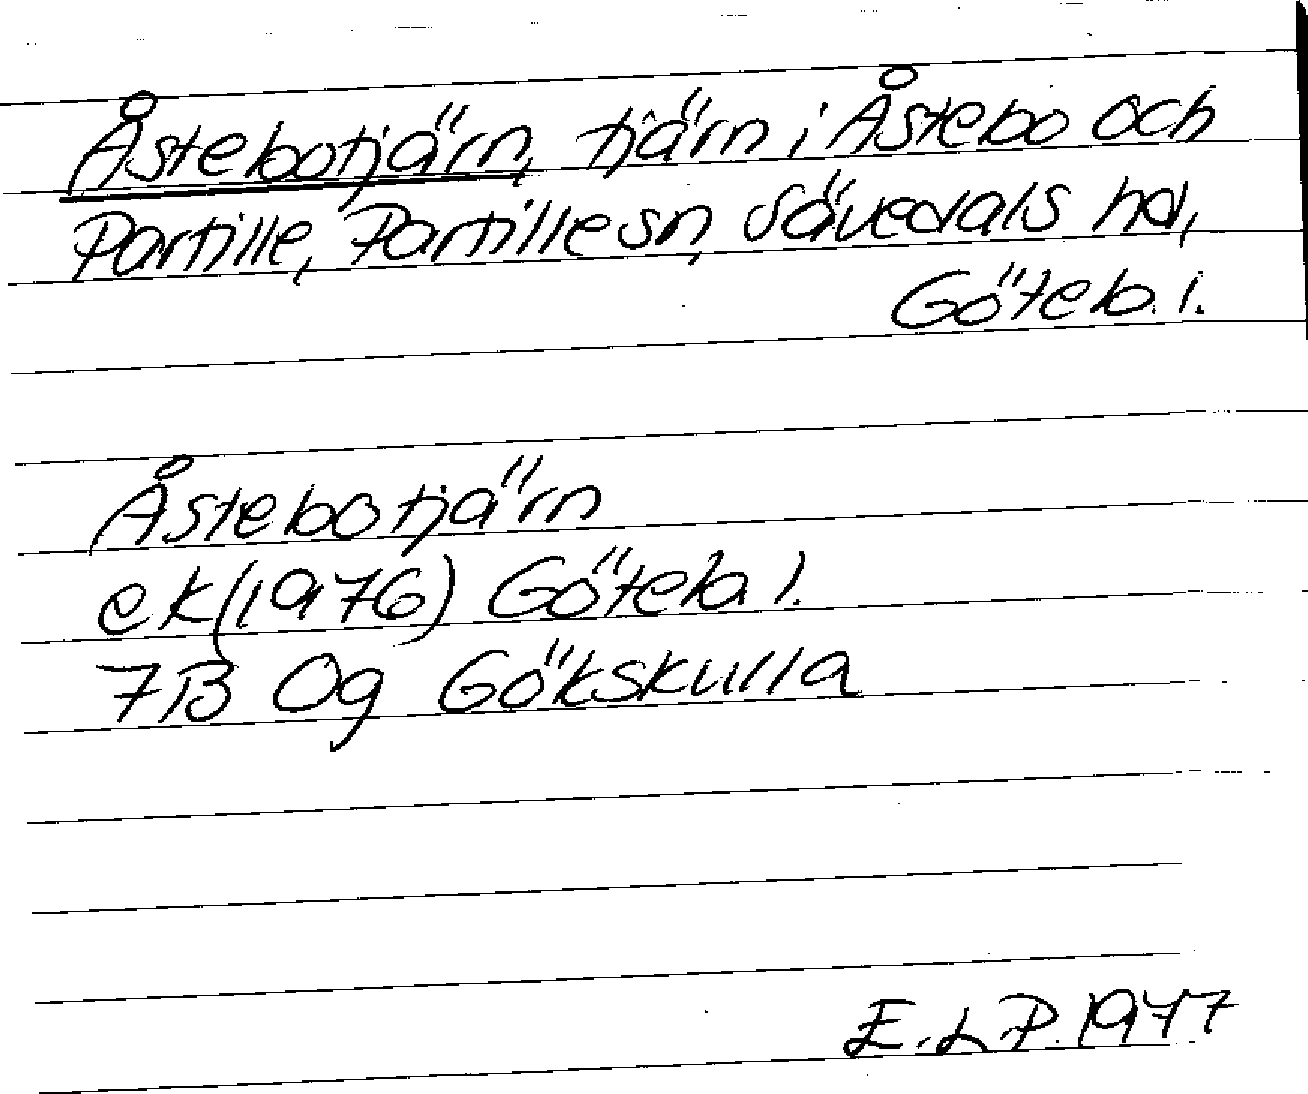 Åstebotjärn, tjärn i Åstebo och
Partille, Partille sn, Sävedals hd,
Göteb. l.
Åstebotjärn
ek (1976) Göteb l.
7B 0g Gökskulla
E. L P. 1977